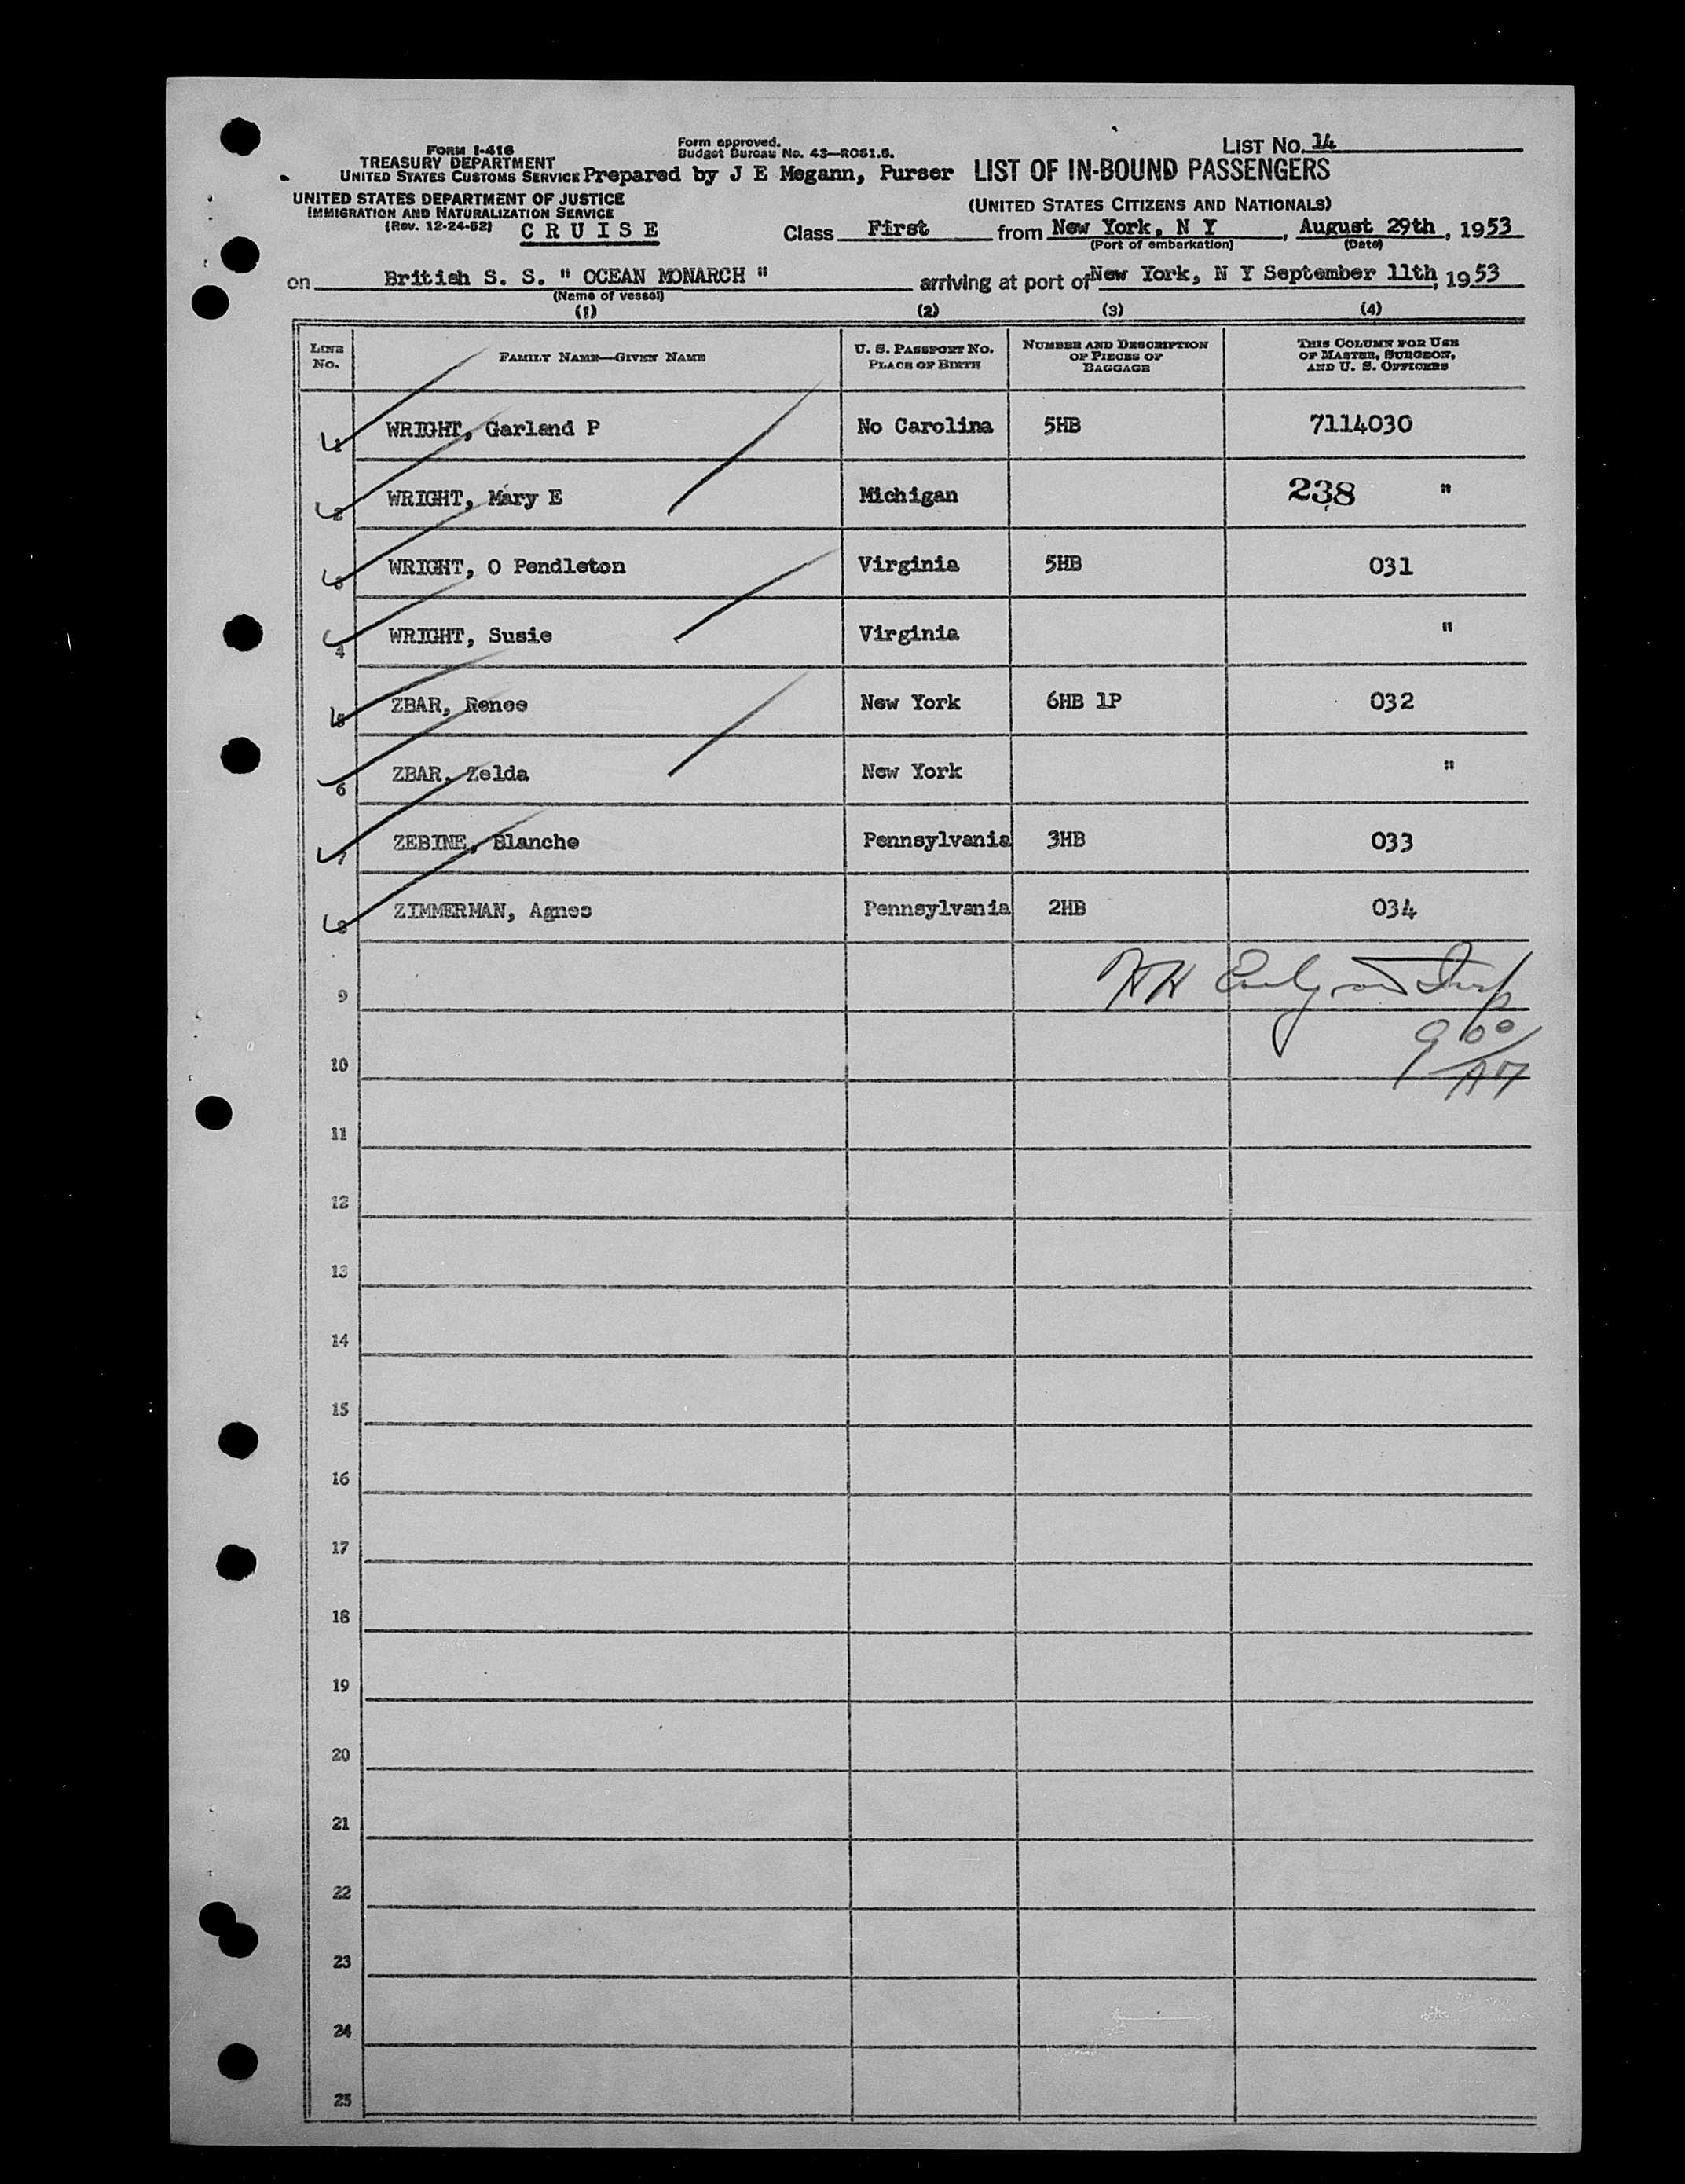 FORM I-416
TREASURY DEPARTMENT
UNITED STATES CUSTOMS SERVICE
UNITED STATES DEPARTMENT OF JUSTICE
IMMIGRATION AND NATURALIZATION SERVICE
(Rev. 12-24-52)
C R U I S E
Form approved.
Budget Bureau No. 43—R051.5.
Prepared by J E Megann, Purser
LIST No. 14
LIST OF IN-BOUND PASSENGERS
(UNITED STATES CITIZENS AND NATIONALS)
Class First from New York, N Y, August 29th, 1953
(Port of embarkation) (Date)
on British S. S. " OCEAN MONARCH " arriving at port of New York, N Y September 11th, 1953
(Name of vessel)
(1) (2) (3) (4)
LINE No. FAMILY NAME—GIVEN NAME U. S. PASSPORT No. PLACE OF BIRTH NUMBER AND DESCRIPTION OF PIECES OF BAGGAGE THIS COLUMN FOR USE OF MASTER, SURGEON, AND U. S. OFFICERS
1 WRIGHT, Garland P No Carolina 5HB 7114030
2 WRIGHT, Mary E Michigan 238 "
3 WRIGHT, O Pendleton Virginia 5HB 031
4 WRIGHT, Susie Virginia "
5 ZBAR, Renee New York 6HB 1P 032
6 ZBAR, Zelda New York "
7 ZEBINE, Blanche Pennsylvania 3HB 033
8 ZIMMERMAN, Agnes Pennsylvania 2HB 034
9
900
10 AM
11
12
13
14
15
16
17
18
19
20
21
22
23
24
25